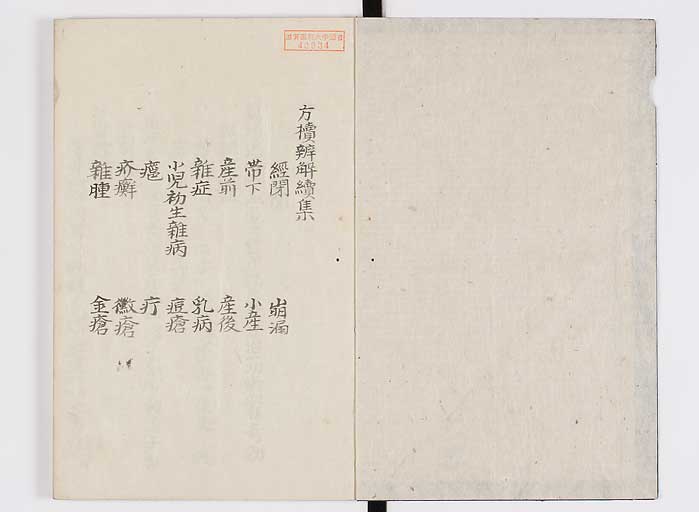 方櫝辨解續集
經閉 崩漏
帯下 小産
産前 産後
雜症 乳病
小児初生雜病 痘瘡
瘟 疔
疥癬 黴瘡
雜腫 金瘡